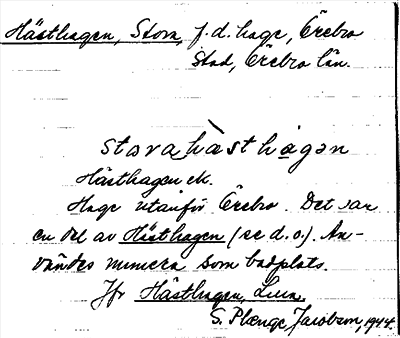 Hästhagen, Stora, f.d. hage, Örebro
stad, Örebro län.
stora hàst hagən
Hästhagen ek.
Hage utanför Örebro. Det var
en del av Hästhagen (se d.o.). An-
vändes numera som badplats.
Jfr Hästhagen, Lilla.
S. Plænge Jacobson, 1944.